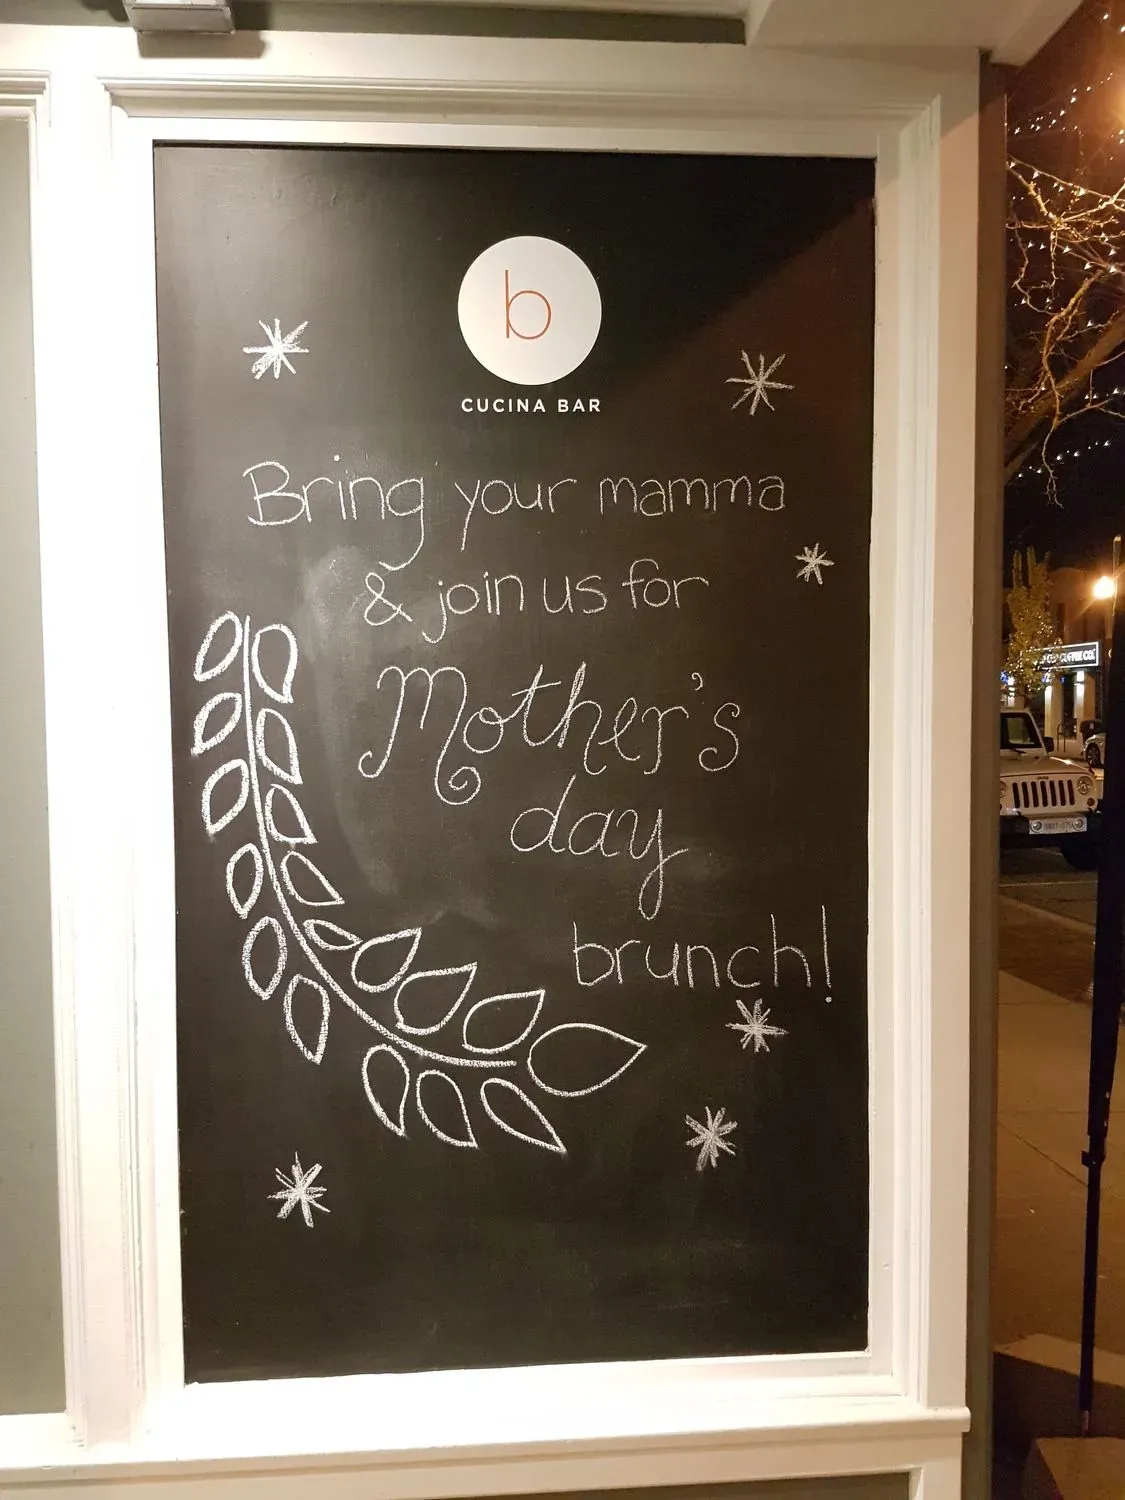 b
CUCINA BAR
Bring your mamma
& join us for
Mother's
day
brunch!
COFFEE CO.
Jeep